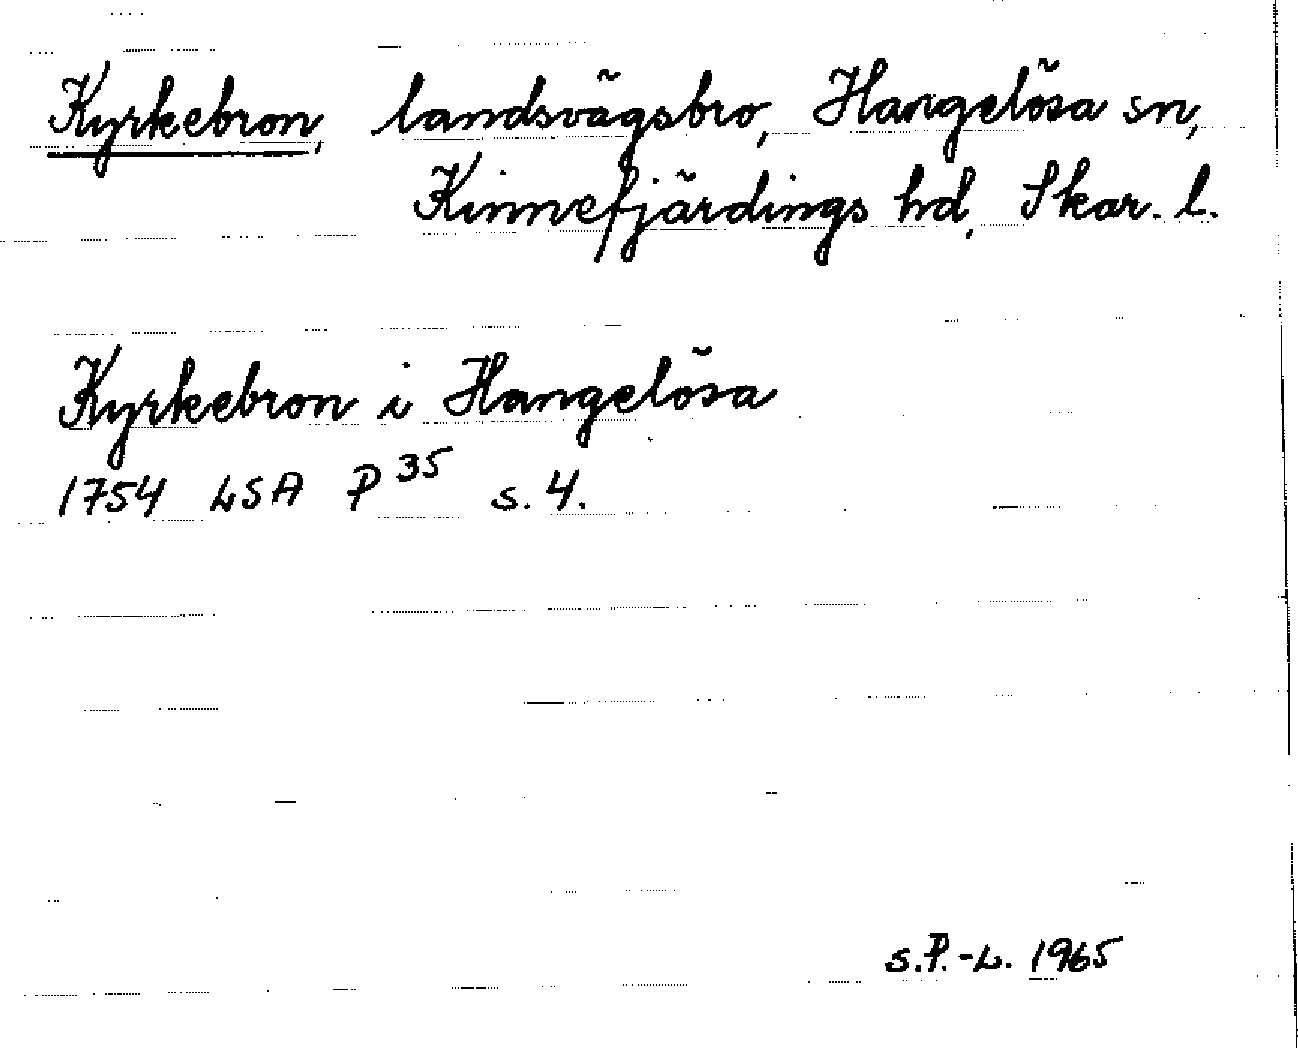 Kyrkebron, landsvägsbro, Hangelösa sn,
Kinnefjärdings hd, Skar. l.
Kyrkebron i Hangelösa
1754 LSA P 35 s. 4.
S.P.-L. 1965